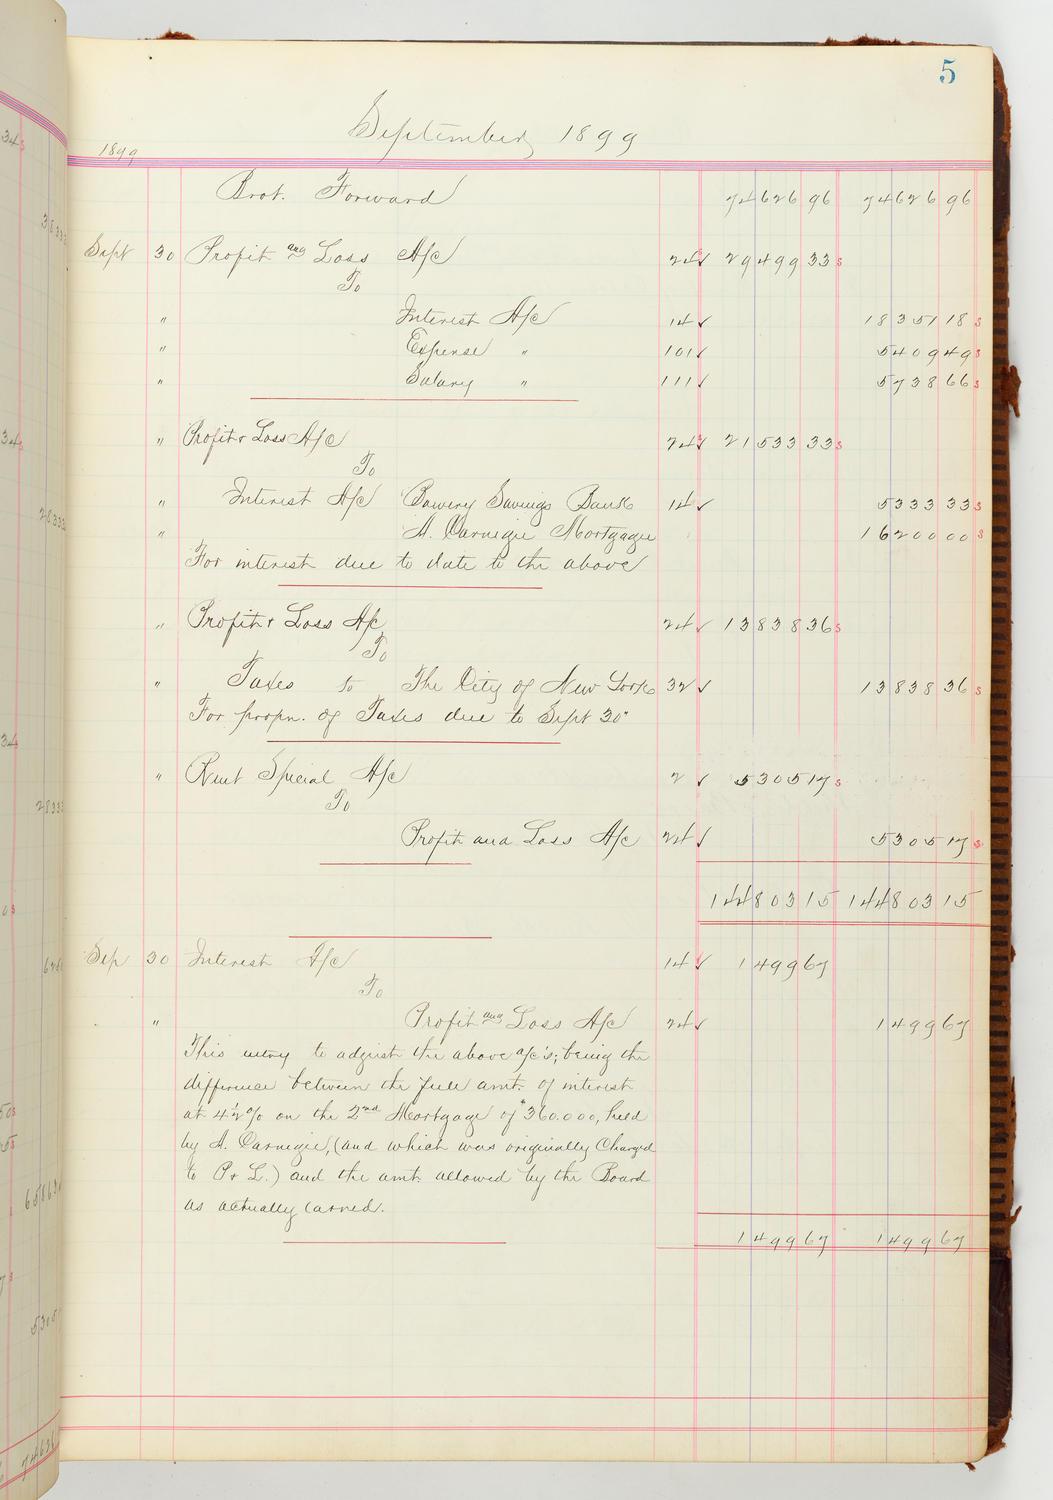 5
September, 1899
1899
Brot. Forward 74626 96 74626 96
Sept 30 Profit and Loss A/c 24 ✓ 29499 33 s
To
" Interest A/c 14 ✓ 18351 18 s
" Expense " 101 ✓ 5409 49 s
" Salary " 111 ✓ 5738 66 s
" Profit & Loss A/c 24 ✓ 21533 33 s
To
" Interest A/c Bowery Savings Bank 14 ✓ 5333 33 s
" A. Carnegie Mortgagee 16200 00 s
For interest due to date to the above
" Profit & Loss A/c 24 ✓ 13838 36 s
To
" Taxes to The City of New York 32 ✓ 13838 36 s
For propn. of Taxes due to Sept 30"
" Rent Special A/c 2 ✓ 5305 17 s
To
Profit and Loss A/c 24 ✓ 5305 17 s
144803 15 144803 15
Sep 30 Interest A/c 14 ✓ 1499 67
To
" Profit and Loss A/c 24 ✓ 1499 67
This entry to adjust the above a/c's; being the
difference between the full amt. of interest
at 4½% on the 2nd Mortgage of $360.000, held
by A. Carnegie, (and which was originally Charged
to P & L.) and the amt. allowed by the Board
as actually earned.
1499 67 1499 67